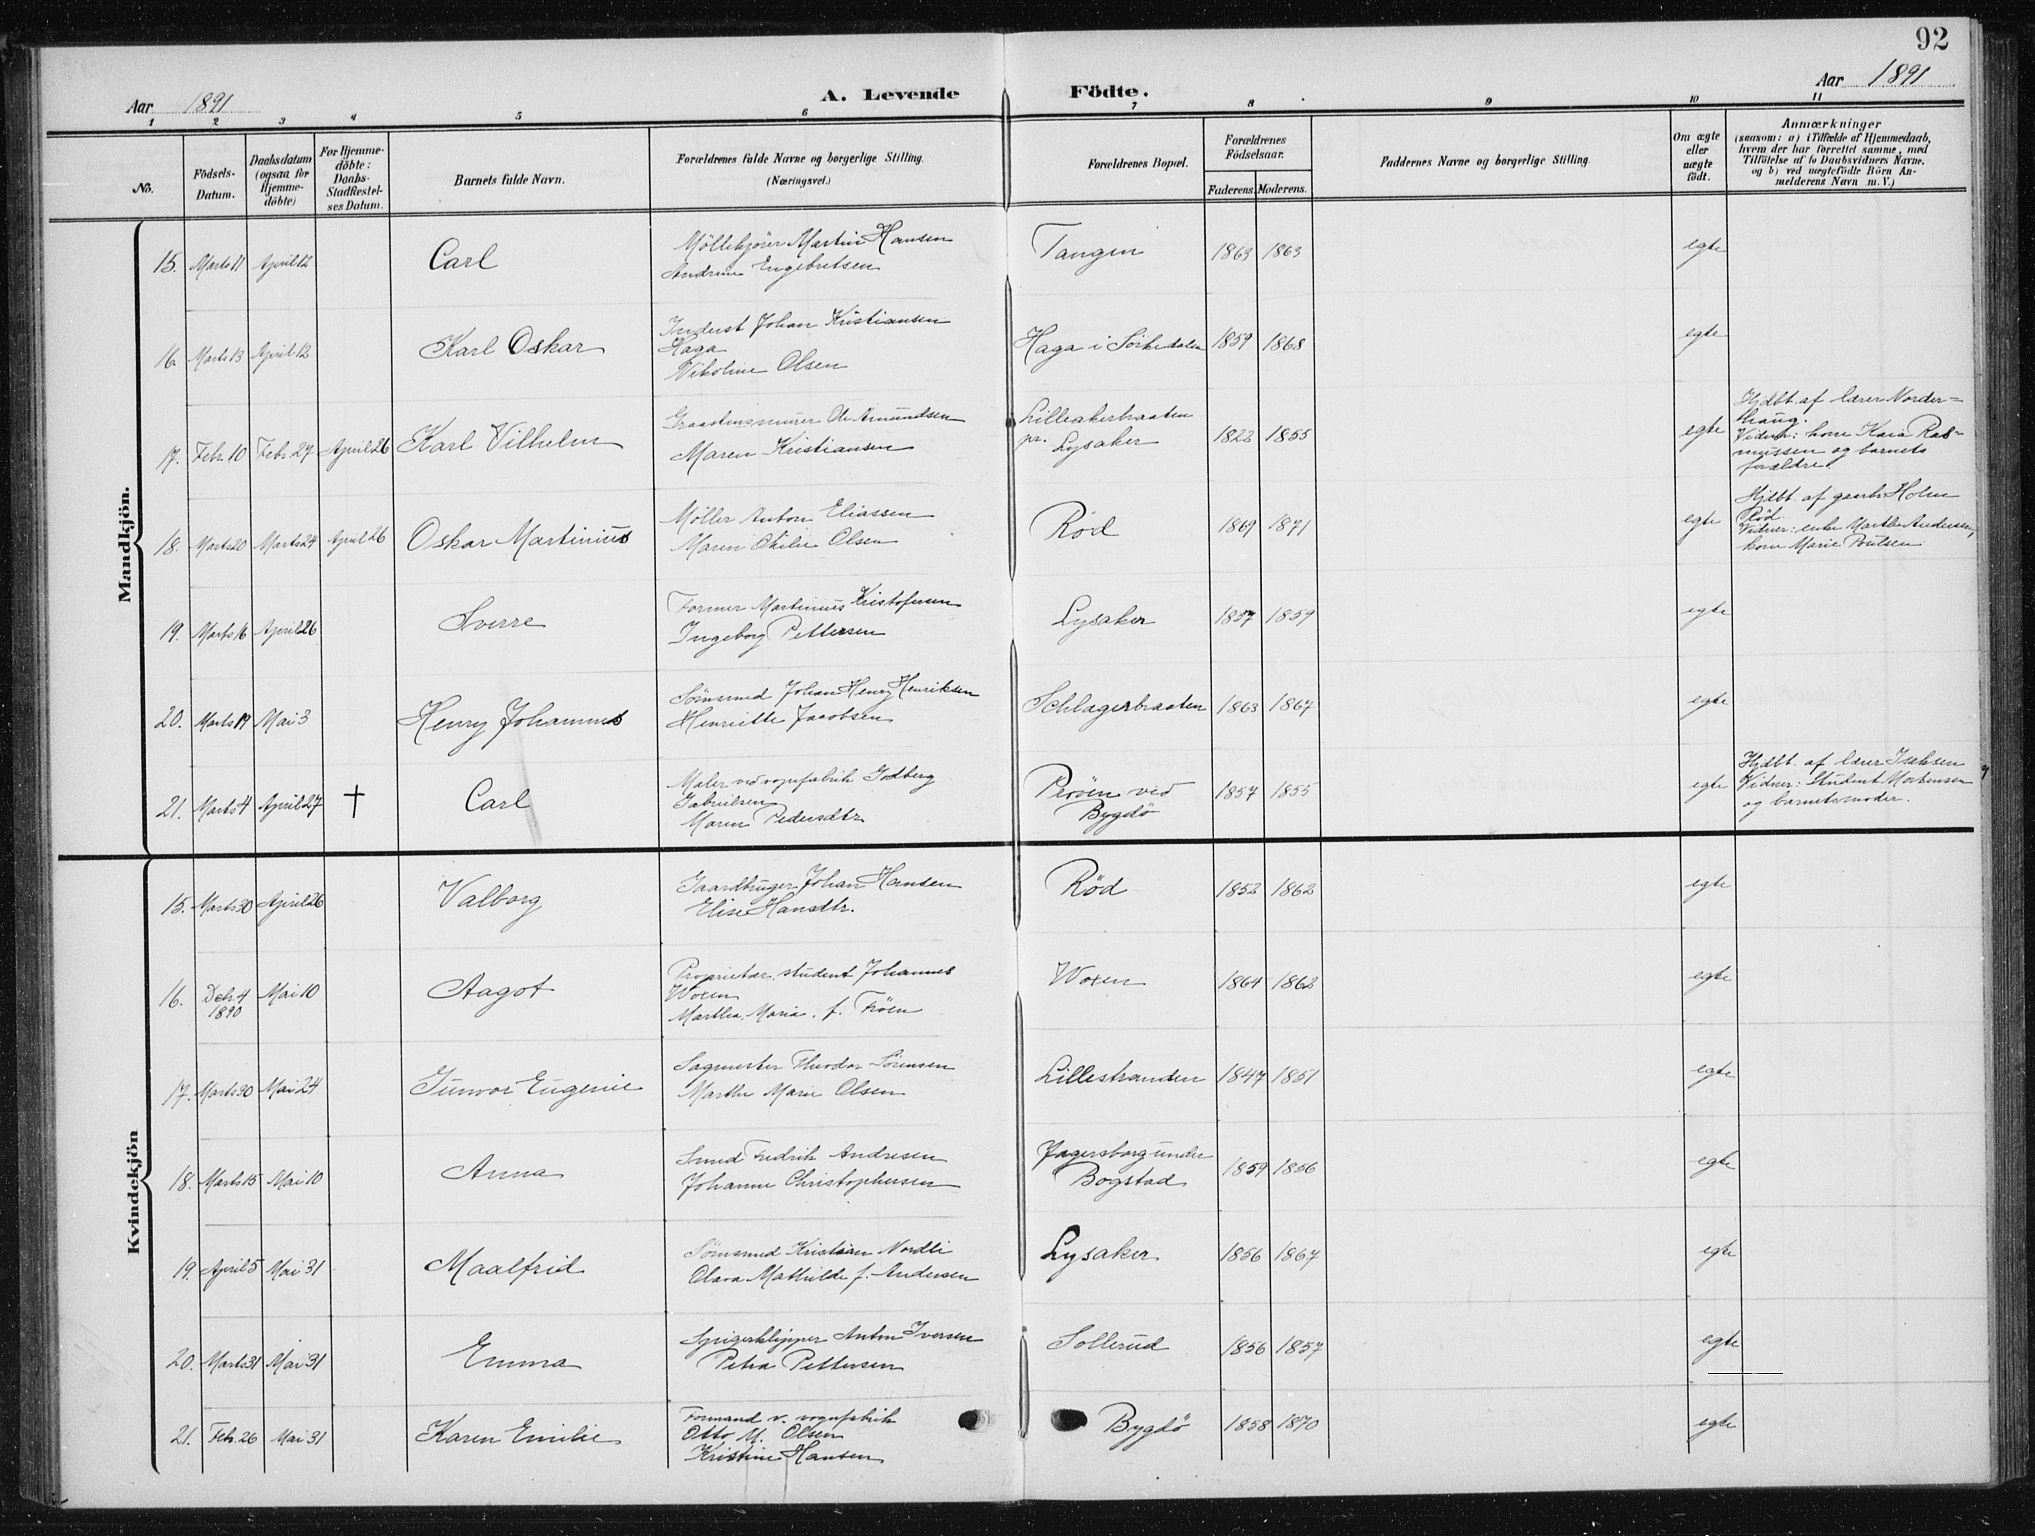 92
Aar 1891
A. Levende Födte.
Aar 1891
1 2 3 4 5 6 7 8 9 10 11
No.
Födsels-Datum.
Daabsdatum (ogsaa for Hjemme-döbte)
For Hjemme-döbte: Daabs-Stadfæstel-ses Datum.
Barnets fulde Navn.
Forældrenes fulde Navne og borgerlige Stilling.
(Næringsvei.)
Forældrenes Bopæl.
Forældrenes Födselsaar.
Faderens. Moderens.
Faddernes Navne og borgerlige Stilling.
Om ægte eller uægte födt.
Anmærkninger
(saasom: a) i Tilfælde af Hjemmedaab,
hvem der har forrettet samme, med
Tilföielse af to Daabsvidners Navne.
og b) ved uægtefödte Börn An-
melderens Navn m. V.)
Mandkjön.
15. Marts 11 April 12 Carl
Möllekjörer Martin Hansen
Andrine Engebretsen
Tangen 1863 1863 egte
16. Marts 13 April 12 Karl Oskar
Inderst Johan Kristiansen
Haga
Nikoline Olsen
Haga i Sörkedalen 1859 1868 egte
17. Febr. 10 Febr. 27 April 26 Karl Vilhelm
Graastensmurer Ole Amundsen
Maren Kristiansen
Lilleakerbraaten
pr. Lysaker
1822 1855 egte
Hjdbt. af lærer Norder=
haug.
Vidner: kone Kara Ras=
mussen og barnets
forældre.
18. Marts 20 Marts 24 April 26 Oskar Martinius
Möller Anton Eliassen
Maren Otilie Olsen
Röd 1869 1871 egte
Hjdbt. af gaardbr. Holm
Röd.
Vidner: enke Marthe Andersen,
kone Marie Poulsen
19. Marts 16 April 26 Sverre
Former Martinius Kristofersen
Ingeborg Pettersen
Lysaker 1857 1859 egte
20. Marts 19 Mai 3 Henry Johannes
Sömsmed Johan Henry Henriksen
Henriette Jacobsen
Schlagerbraaten 1863 1867 egte
21. Marts 4 April 27 † Carl
Maler ved vognfabrik Godberg
Gabrielsen
Maren Pedersdtr
Pröven ved
Bygdö
1857 1855 egte
Hjdbt. af lærer Isaksen
Vidner: Student Mortensen
og barnets moder.
Kvindekjön
15. Marts 30 April 26 Valborg
Gaardbruger Johan Hansen
Elise Hansdtr.
Röd 1852 1862 egte
16. Debr. 4 1890 Mai 10 Aagot
Proprietær, student Johannes
Woxen
Martha Maria. f. Tröen
Woxen 1864 1862 egte
17. Marts 30 Mai 24 Gunvor Eugenie
Sagmester Theodor Sörensen
Marthe Marie Olsen
Lillestranden 1847 1851 egte
18. Marts 15 Mai 10 Anna
Smed Fredrik Andresen
Johanne Christophersen
Jagersborg under
Bogstad
1859 1856 egte
19. April 5 Mai 31 Maalfrid
Sömsmed Kristian Nordli
Olava Mathilde f. Andersen
Lysaker 1856 1867 egte
20. Marts 31 Mai 31 Emma
Spigerklipper Anton Iversen
Petra Pettersen
Sollerud 1856 1857 egte
21. Feb. 26 Mai 31 Karen Emilie
Formand v. vognfabrik
Otto M. Olsen
Kristine Hansen
Bygdö 1858 1870 egte